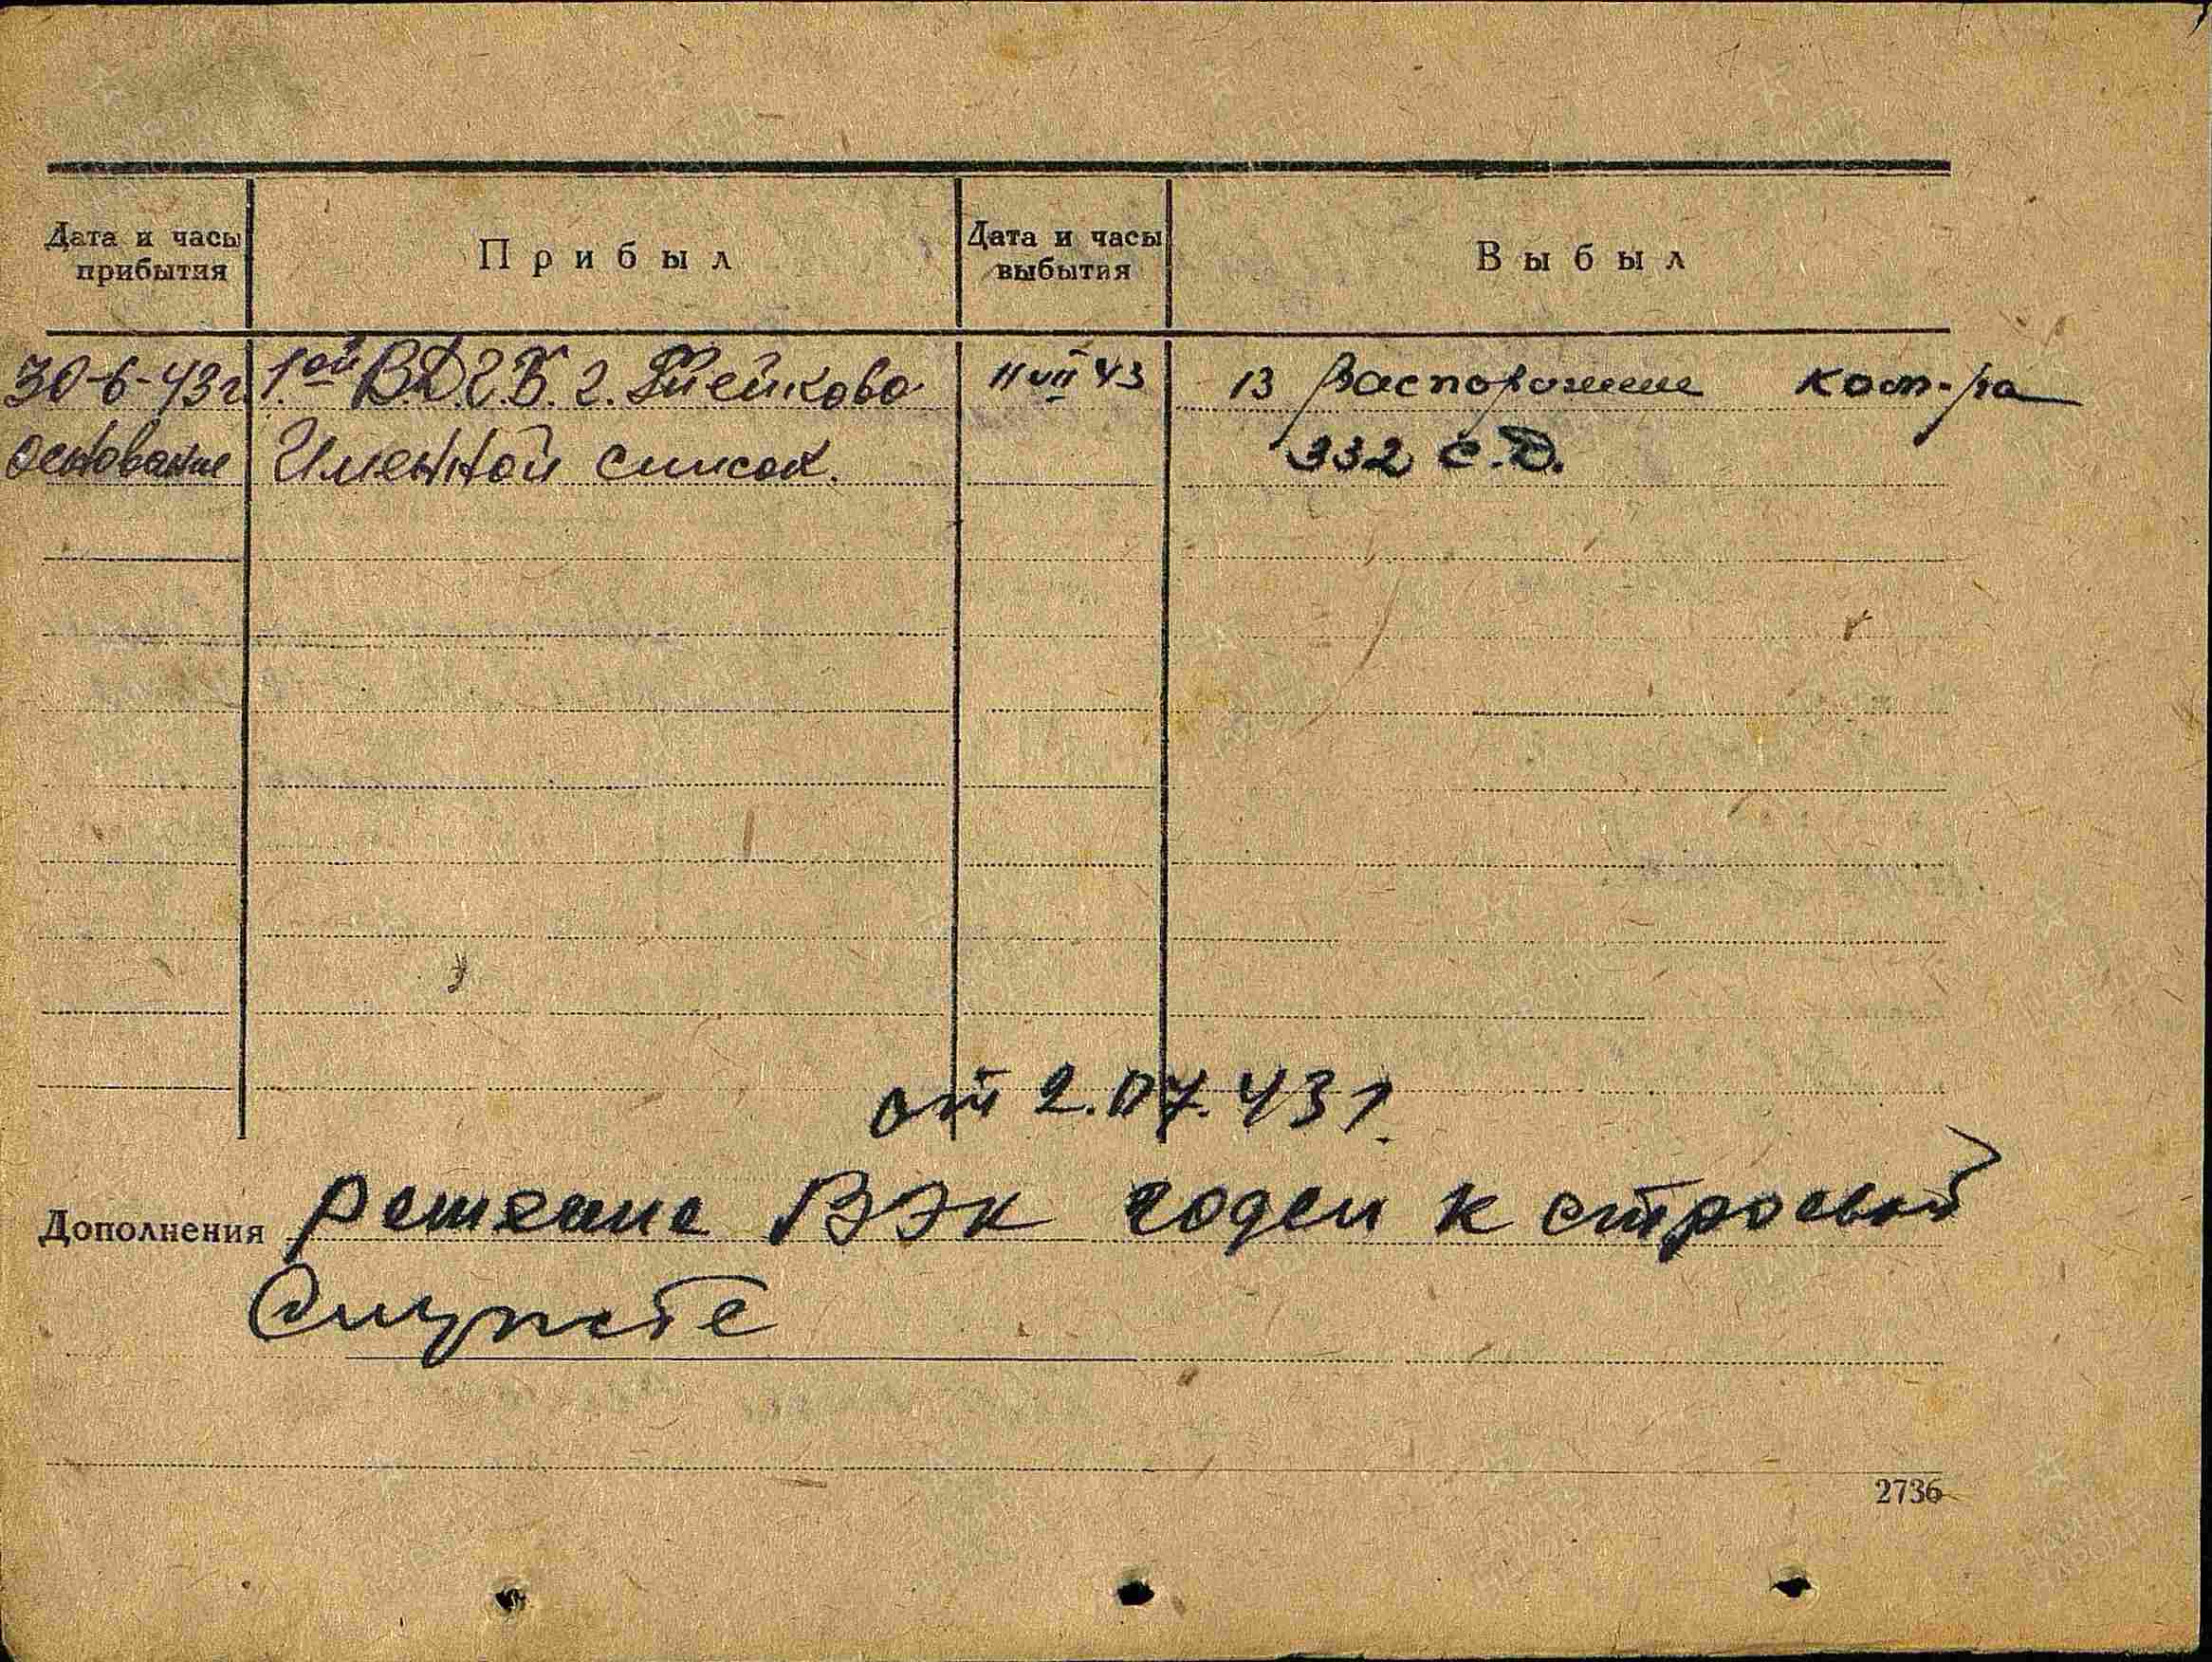 Дата и часы прибытия
Прибыл
Дата и часы выбытия
Выбыл
30-6-43г. 1.ой В.Д.Г.Б. г. Тейково 11 VII 43 В распоряжение ком-ра
основание Именной список. 332 С.Д.
от 2.07.43 г.
Дополнения решение ВЭК годен к строевой
службе
2736